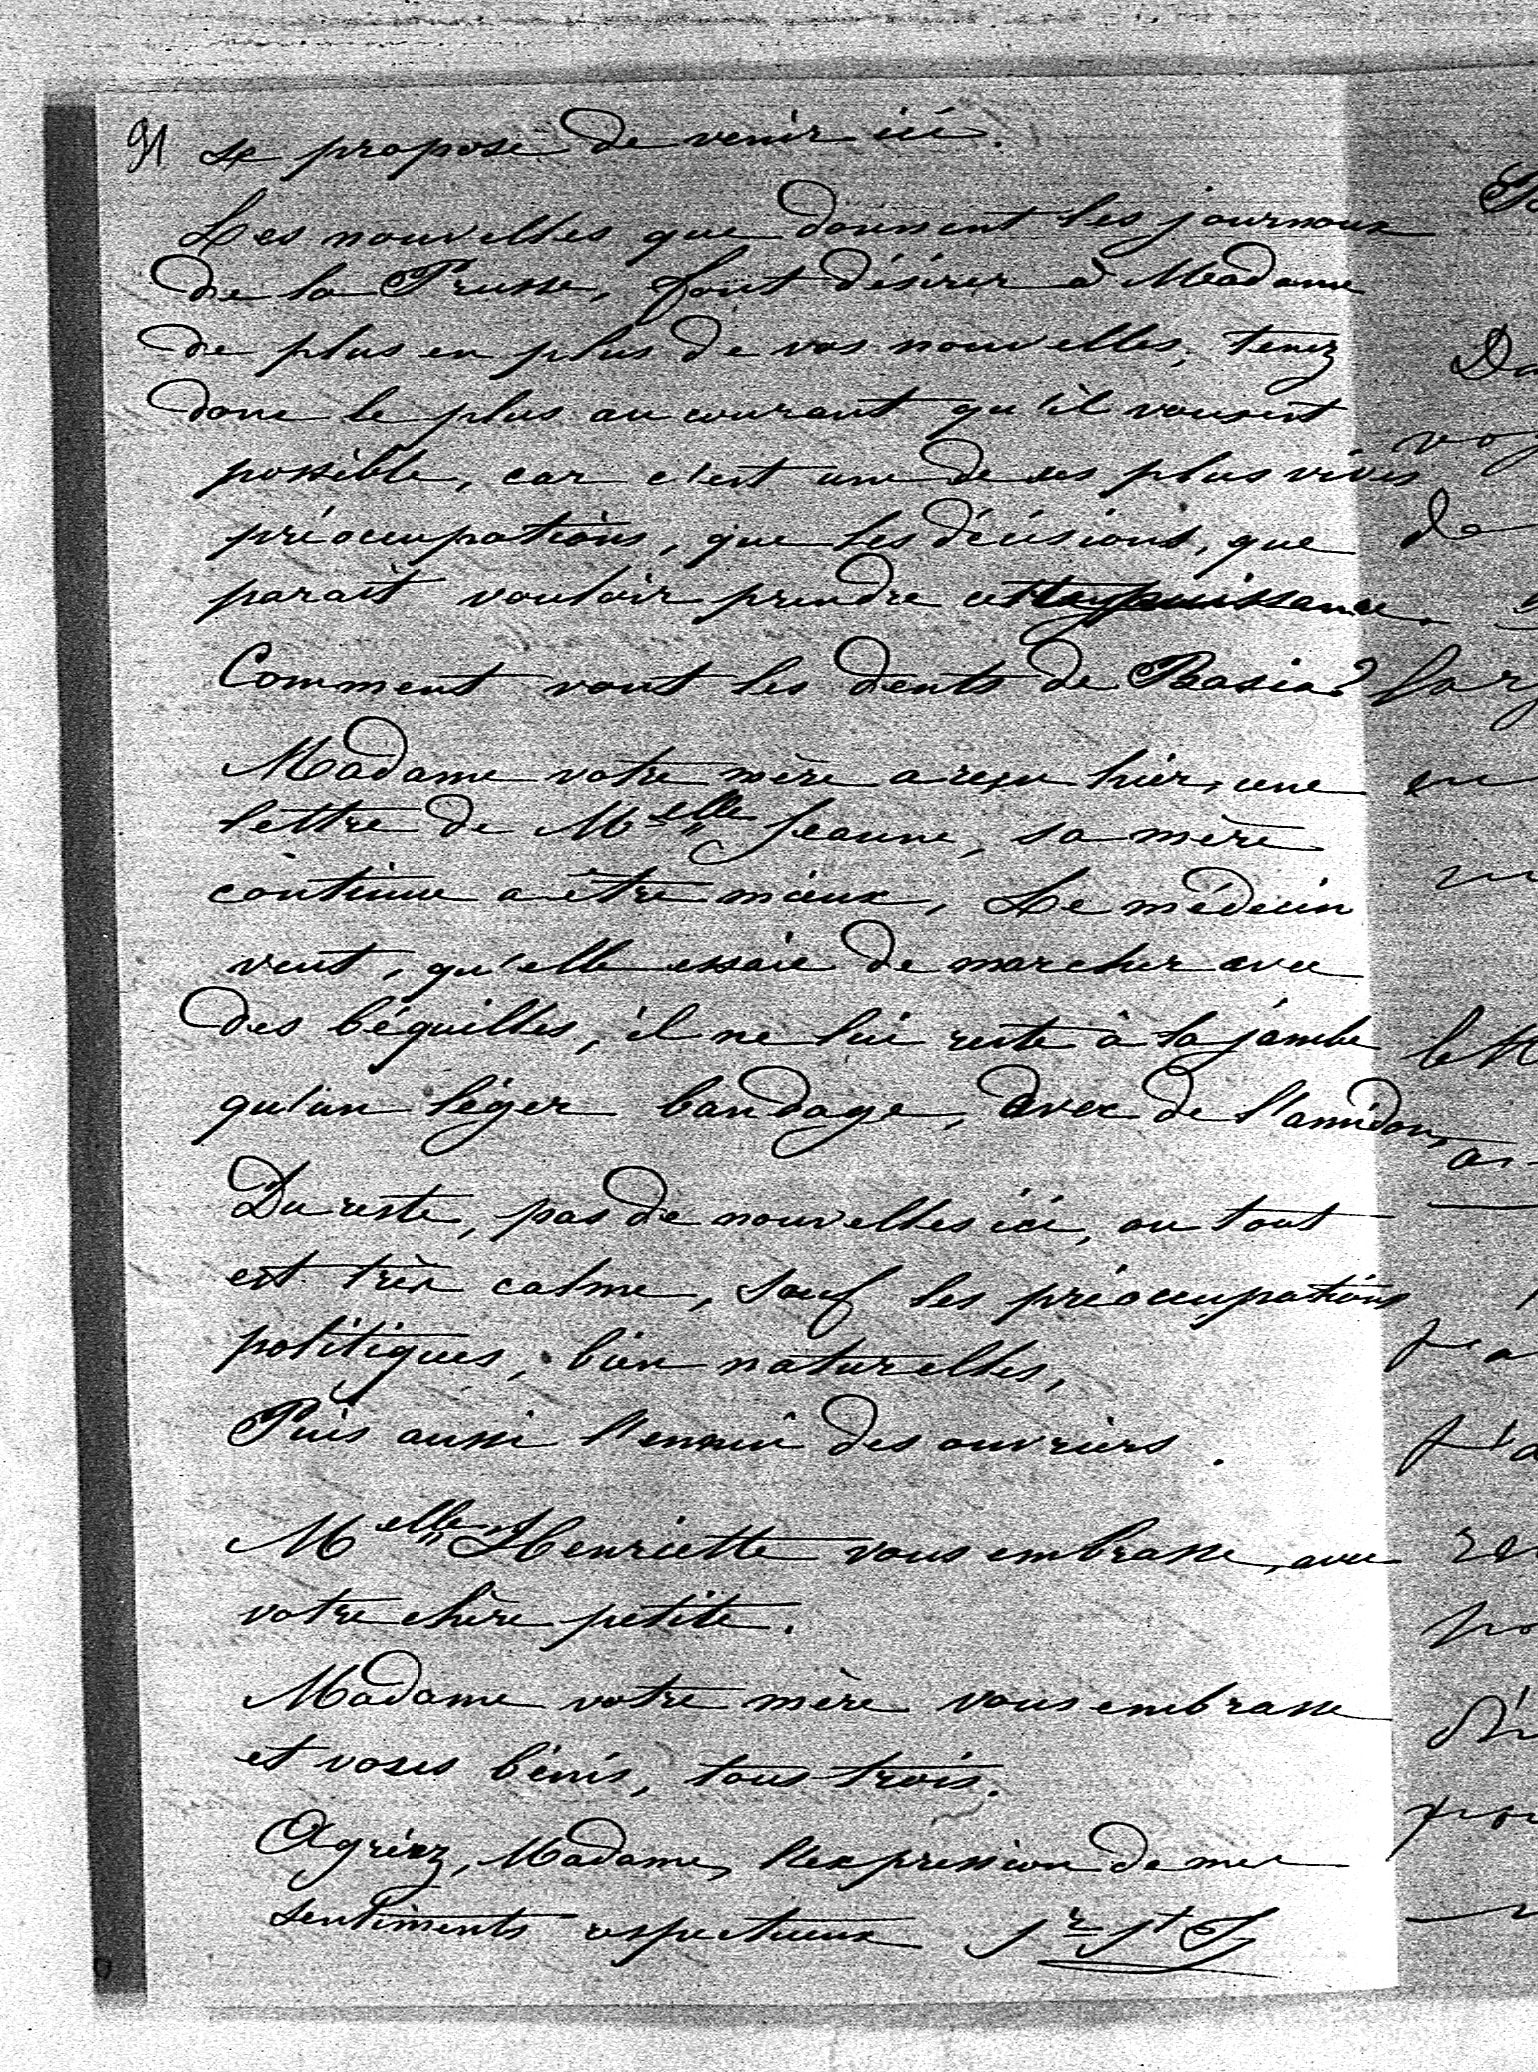 91 se propose de venir ici.
Les nouvelles que donnent les journaux
de la Prusse, font désirer à Madame
de plus en plus de vos nouvelles, tenez
donc le plus au courant qu'il vous est
possible, car c'est une de ses plus vives
préoccupations, que les décisions, que
parait vouloir prendre cette puissance.
Comment vont les dents de Basia?
Madame votre mère a reçu hier, une
lettre de Melle Jeanne, sa mère
continue a être mieux, Le médecin
veut, qu'elle essaie de marcher avec
des béquilles, il ne lui reste à la jambe
qu'un léger bandage, avec de l'amidon,
Du reste, pas de nouvelles ici, ou tout
est très calme, sauf les préoccupations
politiques, bien naturelles,
Puis aussi l'ennui des ouvriers.
Melle Henriette vous embrasse, avec
votre chère petite.
Madame votre mère vous embrasse
et vous bénis, tous trois.
Agréez, Madame, l'expression de mes
sentiments respectueux Sr St J